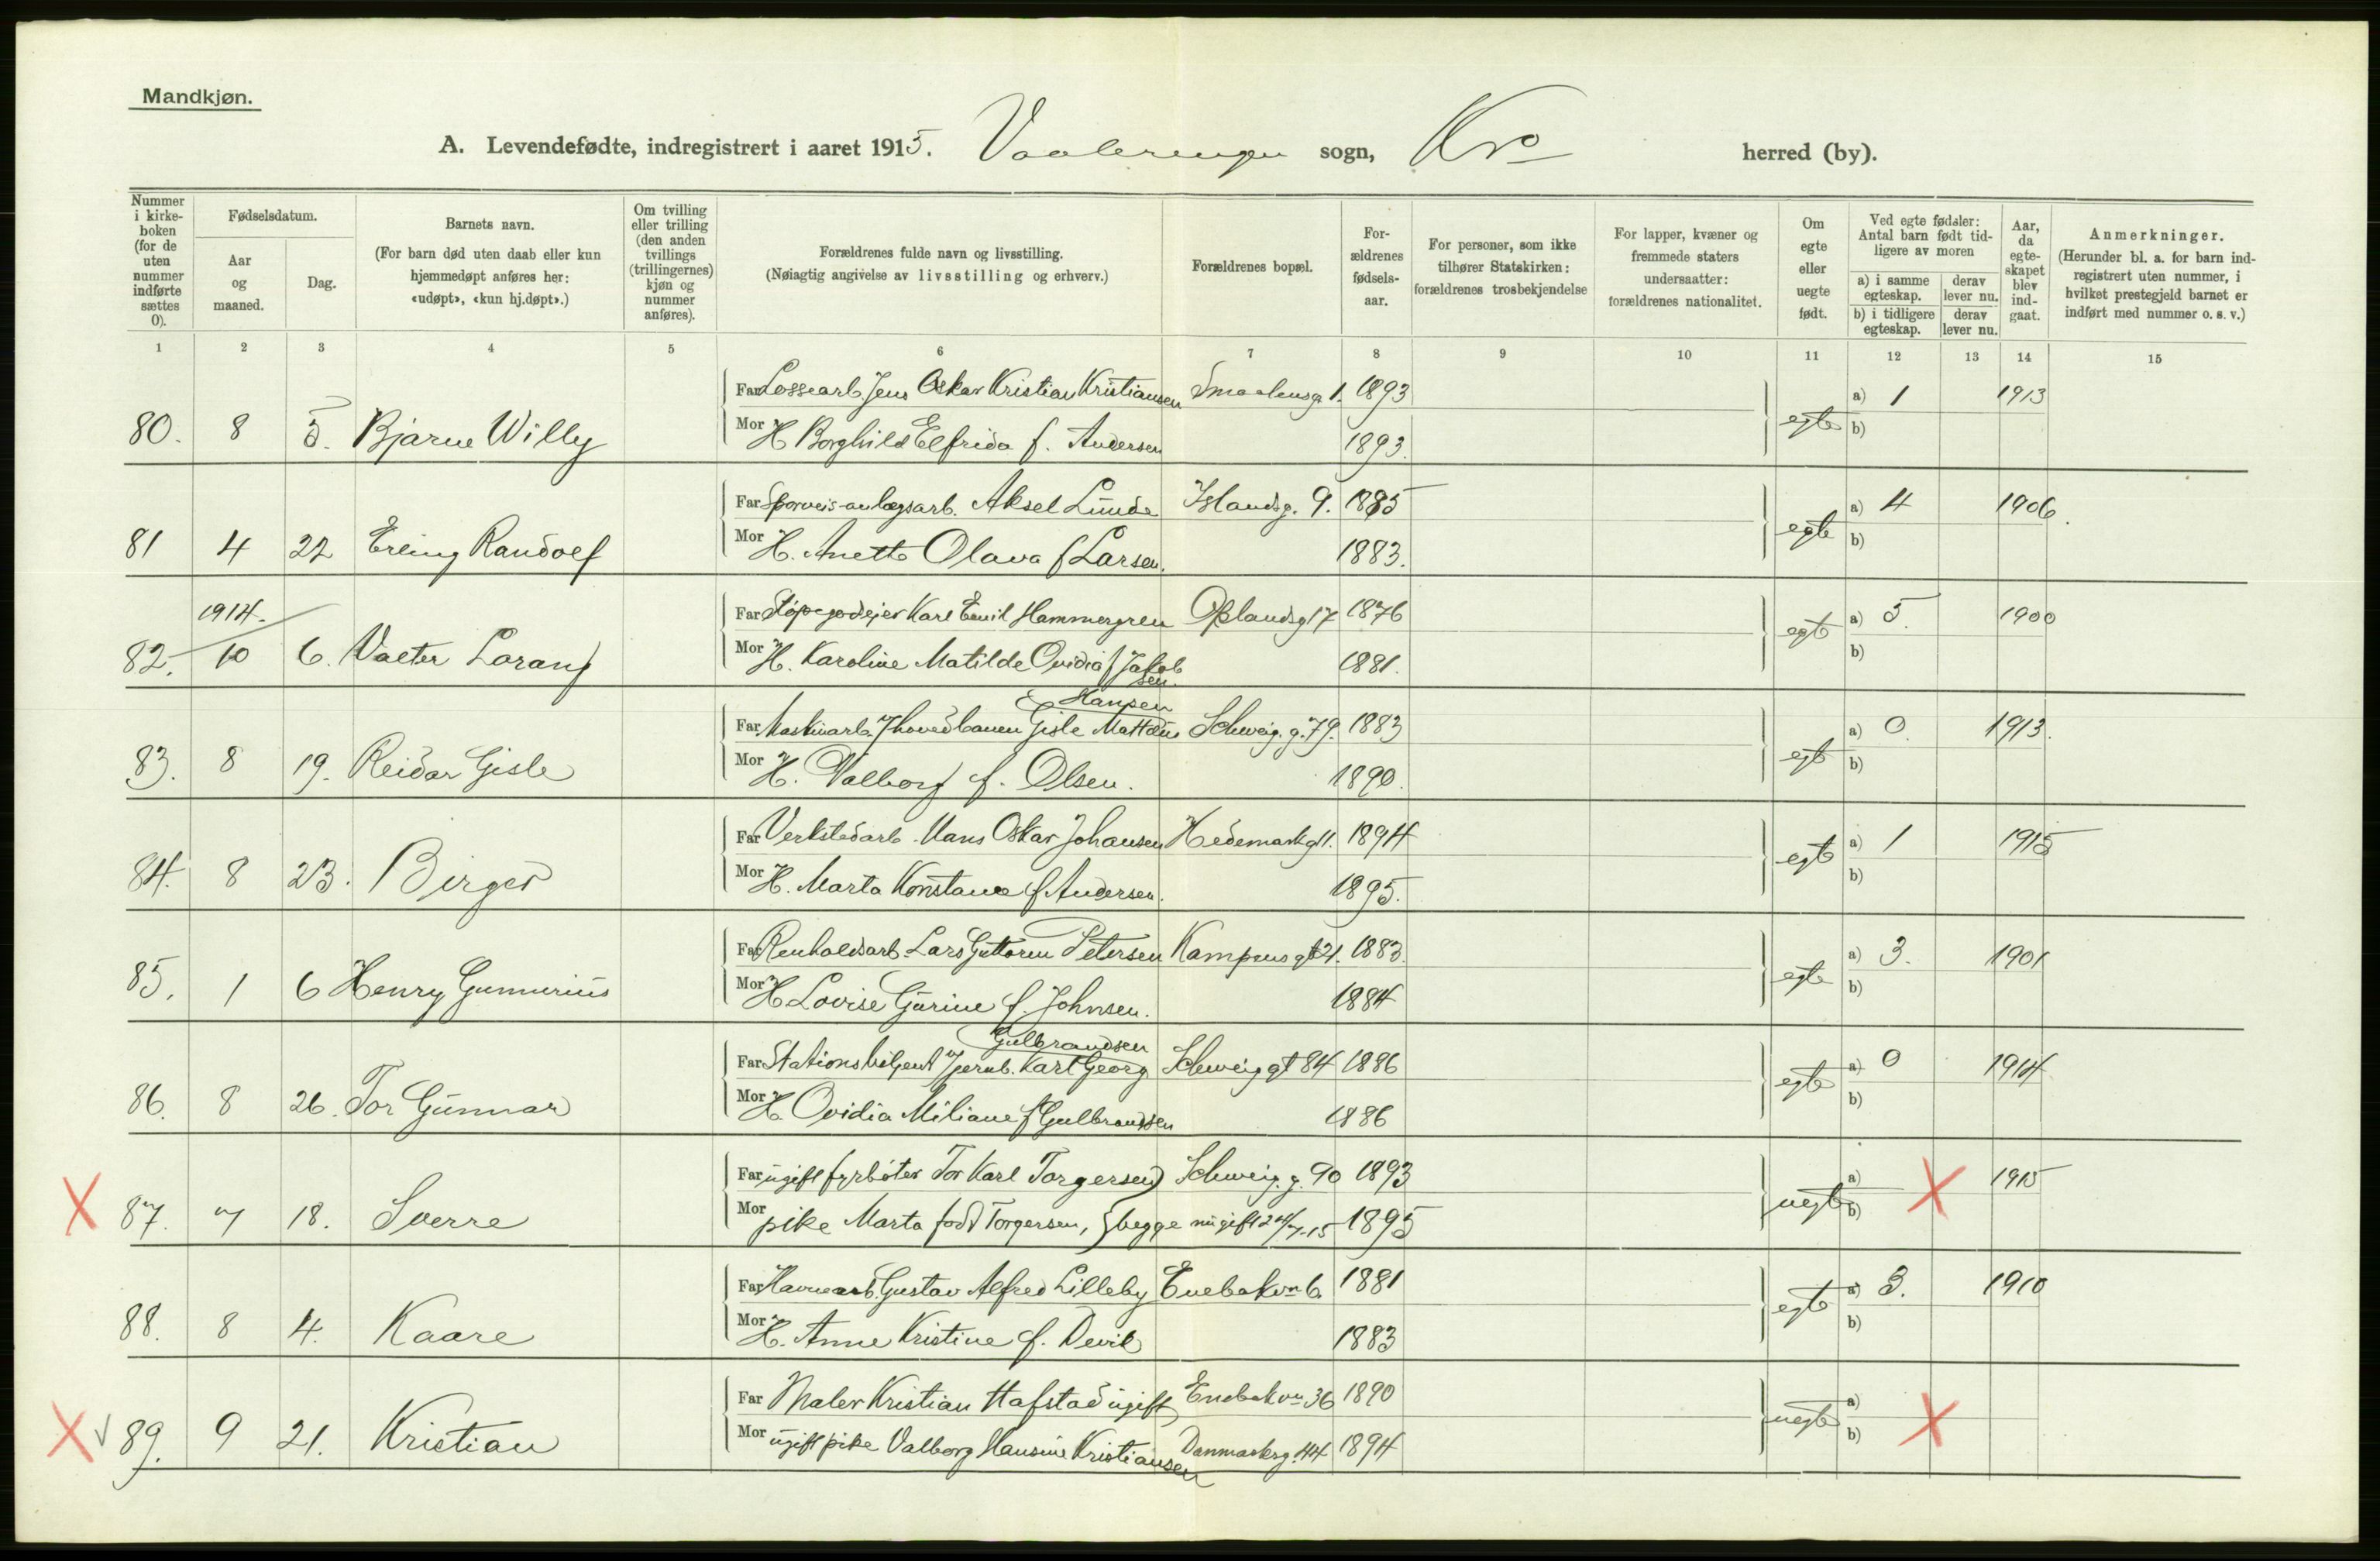 Mandkjøn.
A. Levendefødte, indregistrert i aaret 1915. Vaalerengen sogn, Kra herred (by).
Nummer i kirkeboken (for de uten nummer indførte sættes 0).
Fødselsdatum.
Aar og maaned.
Dag.
Barnets navn.
(For barn død uten daab eller kun hjemmedøpt anføres her: «udøpt», «kun hj.døpt».)
Om tvilling eller trilling (den anden tvillings (trillingernes) kjøn og nummer anføres).
Forældrenes fulde navn og livsstilling.
(Nøiagtig angivelse av livsstilling og erhverv.)
Forældrenes bopæl.
Forældrenes fødselsaar.
For personer, som ikke tilhører Statskirken: forældrenes trosbekjendelse
For lapper, kvæner og fremmede staters undersaatter: forældrenes nationalitet.
Om egte eller uegte født.
Ved egte fødsler: Antal barn født tidligere av moren
a) i samme egteskap. derav lever nu.
b) i tidligere egteskap. derav lever nu.
Aar, da egteskapet blev indgaat.
Anmerkninger.
(Herunder bl. a. for barn indregistrert uten nummer, i hvilket prestegjeld barnet er indført med nummer o. s. v.)
1 2 3 4 5 6 7 8 9 10 11 12 13 14 15
Far Lossearb. Jens Oskar Kristian Kristiansen Smaalensg. 1. 1893 a) 1 1913
80. 8 5. Bjarne Willy Mor H Borghild Elfrida f. Andersen 1893. egte b)
Far Sporveis-anlægsarb. Aksel Lunde Islandsg. 9. 1885 a) 4 1906.
81 4 22 Erling Randolf Mor H. Anette Olava f Larsen. 1883. egte b)
1914.
Far Støpegodseier Karl Emil Hammergren Oplandsg 17 1876 a) 5. 1900
82. 10 6. Valter Lorang Mor H. Karoline Matilde Ovidia f Jakobsen. 1881. egte b)
Hansen
Far Maskinarb. v/ hovedbanen Gisle Mattæus Schweig. g. 79. 1883 a) 0. 1913.
83. 8 19. Reidar Gisle Mor H. Valborg f. Olsen. 1890. egte b)
Far Verkstedarb. Hans Oskar Johansen Hedemarkg 11. 1894 a) 1 1915
84. 8 23. Birger Mor H. Marta Konstanse f Andersen. 1895. egte b)
Far Renholdsarb. Lars Guttorm Petersen Kampens gt 21. 1883. a) 3. 1901
85. 1 6 Henry Gunnerius Mor H Lovise Gurine f. Johnsen. 1884 egte b)
Gulbrandsen
Far Stationsbetjent v/ jernb. Karl Georg Schweig gt 84 1886 a) 0 1914
86. 8 26. Tor Gunnar Mor H. Ovidia Miliane f Gulbrandsen 1886 egte b)
Far ugift fyrbøter Tor Karl Torgersen Schweig. g. 90 1893 a) X 1915
X 87. 7 18. Sverre Mor pike Marta født Torgersen, begge nu gift 24/7-15 1895 uegte b)
Far Havnearb. Gustav Alfred Lilleby Enebakvn 6. 1881 a) 3. 1910
88. 8 4. Kaare Mor H. Anne Kristine f. Devik 1883 egte b)
Far Maler Kristian Hafstad ugift Enebakvn 36 1890 a) X
X √ 89. 9 21. Kristian Mor ugift pike Valborg Hansine Kristiansen Danmarksg. 44 1894 uegte b)